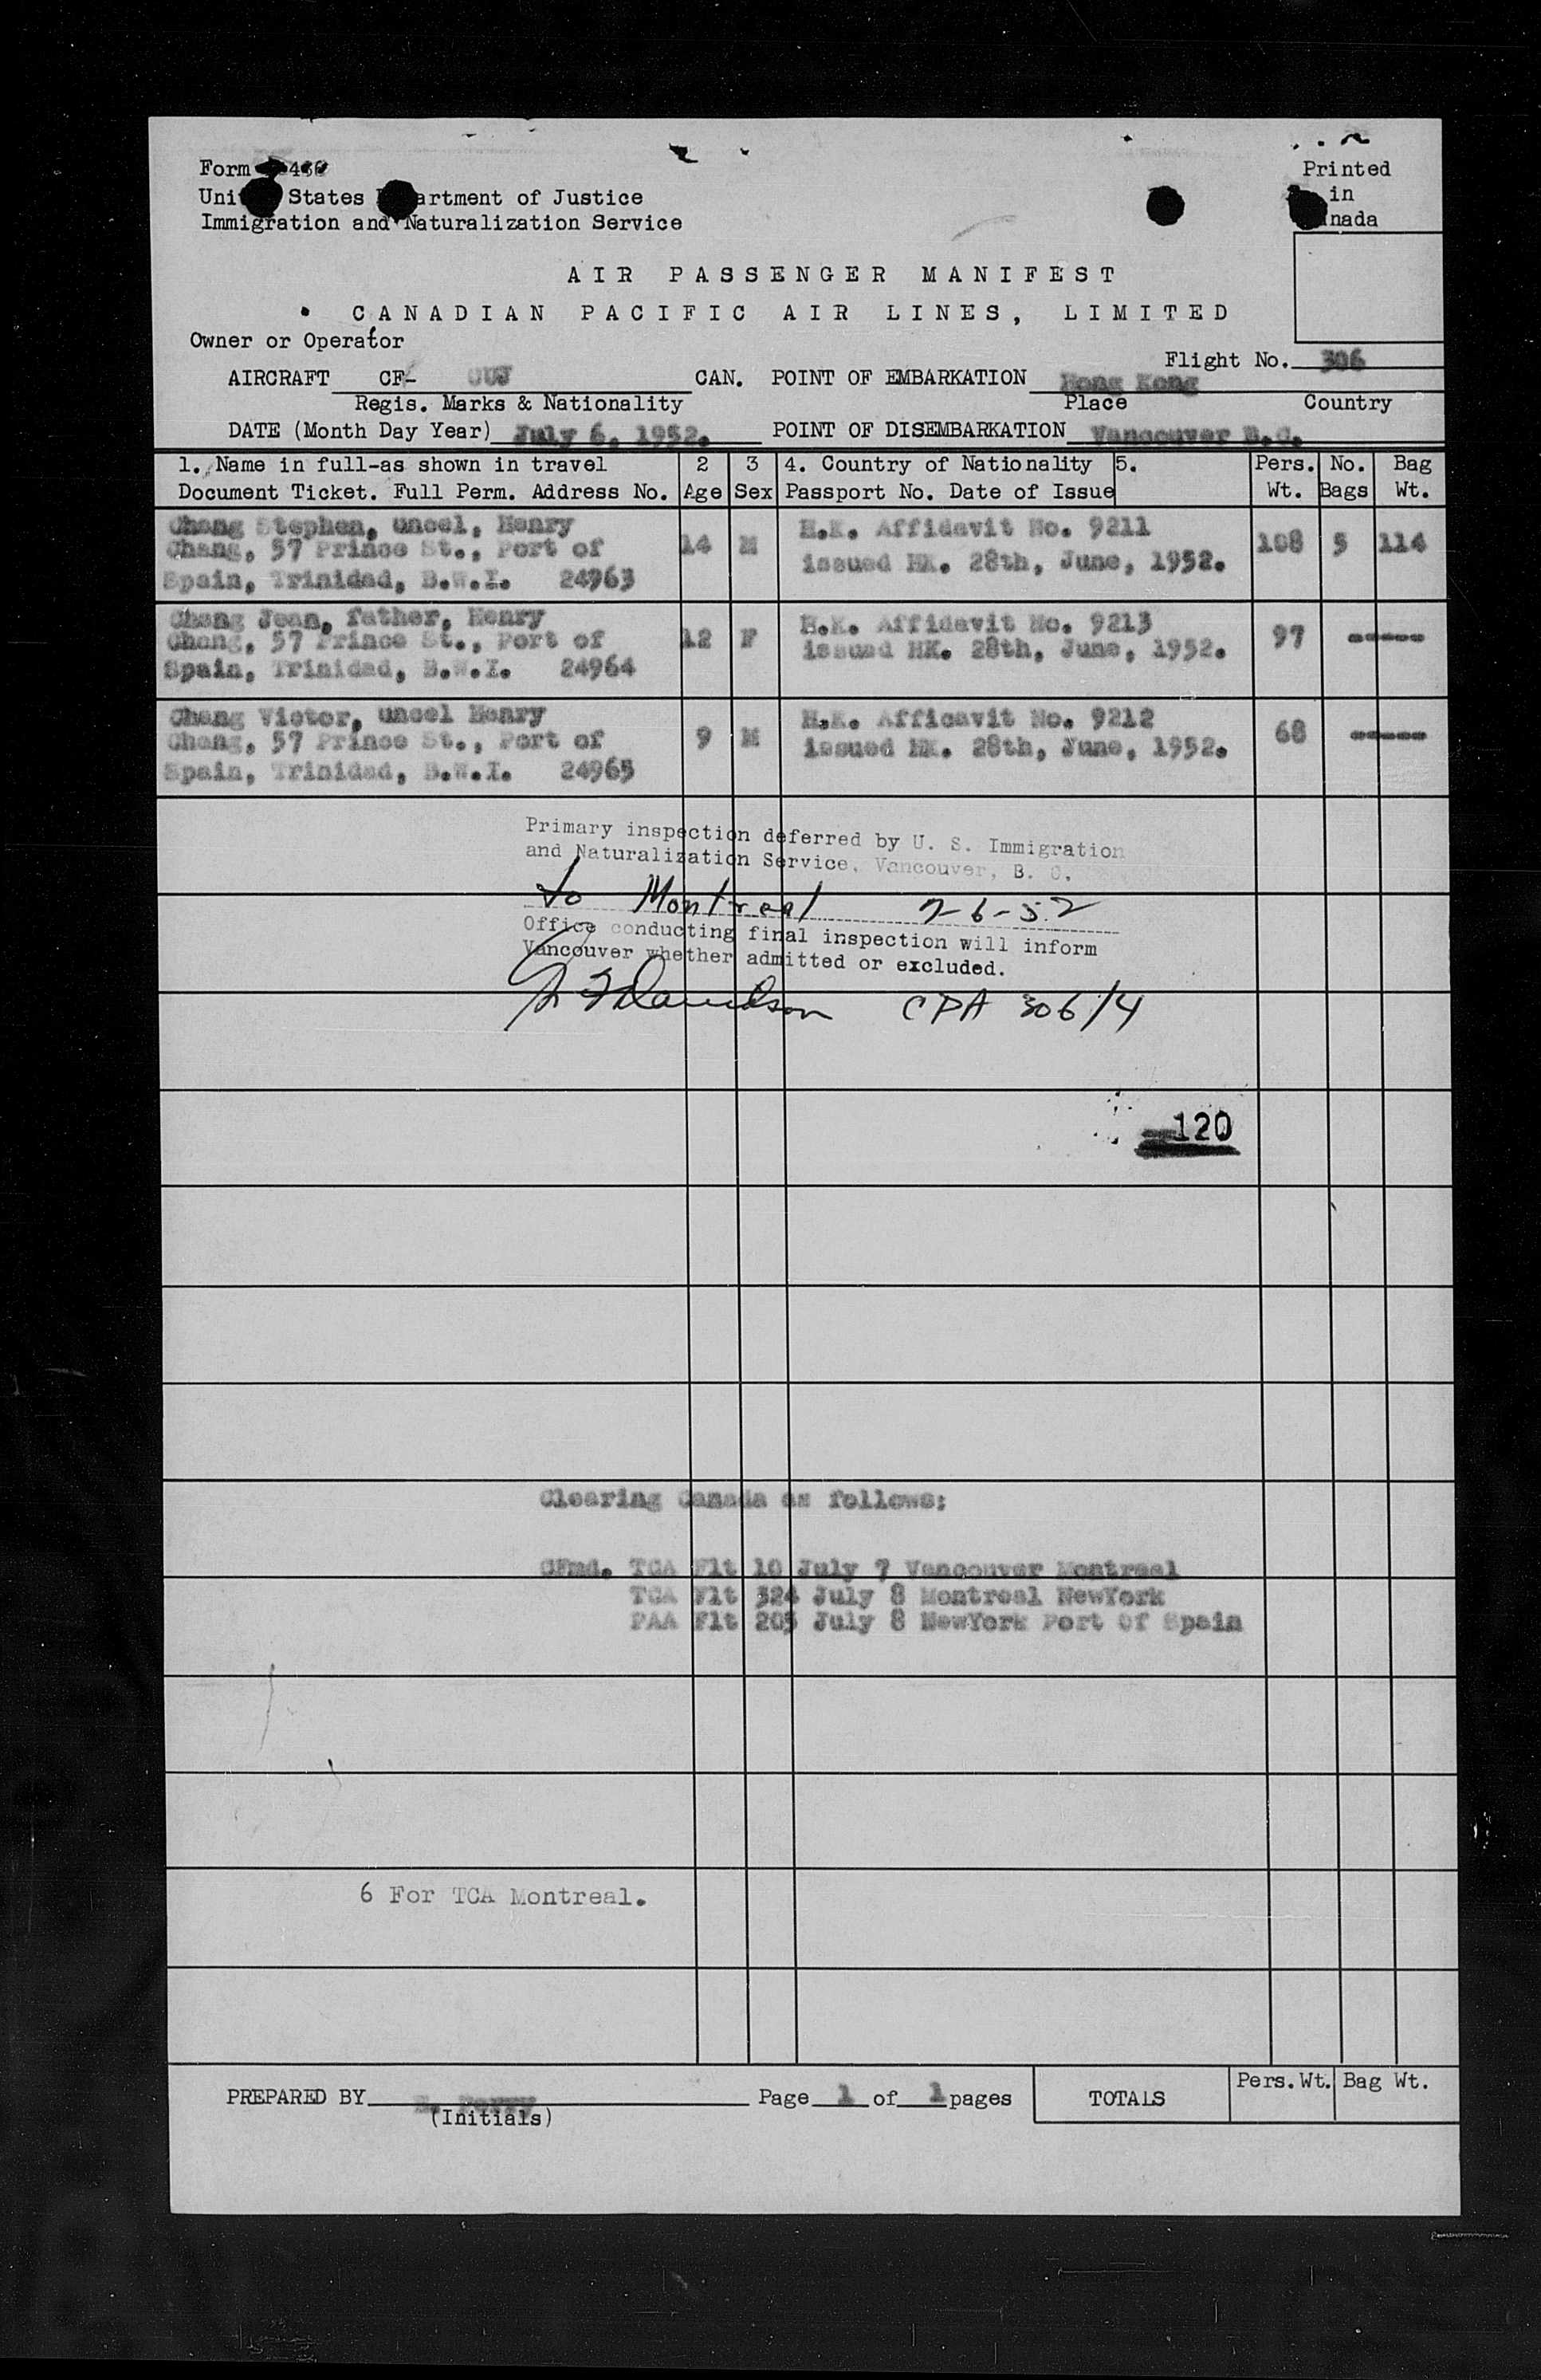 Form
Printed
United States Department of Justice
in
Immigration and Naturalization Service
Canada
AIR PASSENGER MANIFEST
CANADIAN PACIFIC AIR LINES, LIMITED
Owner or Operator
Flight No. 306
AIRCRAFT CF- CUJ CAN. POINT OF EMBARKATION Hong Kong
Regis. Marks & Nationality Place Country
DATE (Month Day Year) July 6, 1952. POINT OF DISEMBARKATION Vancouver B.C.
1. Name in full-as shown in travel 2 3 4. Country of Nationality 5. Pers. No. Bag
Document Ticket. Full Perm. Address No. Age Sex Passport No. Date of Issue Wt. Bags Wt.
Chang Stephen, uncel, Henry H.K. Affidavit No. 9211
Chang, 57 Prince St., Port of 14 M issued HK. 28th, June, 1952. 108 5 114
Spain, Trinidad, B.W.I. 24963
Chang Jean, father, Henry H.K. Affidavit No. 9213
Chang, 57 Prince St., Port of 12 F issued HK. 28th, June, 1952. 97 -----
Spain, Trinidad, B.W.I. 24964
Chang Victor, uncel Henry H.K. Afficavit No. 9212
Chang, 57 Prince St., Port of 9 M issued HK. 28th, June, 1952. 68 -----
Spain, Trinidad, B.W.I. 24965
Primary inspection deferred by U. S. Immigration
and Naturalization Service, Vancouver, B. C.
to Montreal 7-6-52
Office conducting final inspection will inform
Vancouver whether admitted or excluded.
Davidson CPA 306/4
120
Clearing Canada as follows:
CFmd. TCA Flt 10 July 7 Vancouver Montreal
TCA Flt 324 July 8 Montreal NewYork
PAA Flt 205 July 8 NewYork Port Of Spain
6 For TCA Montreal.
Pers. Wt. Bag Wt.
PREPARED BY Page 1 of 1 pages TOTALS
(Initials)